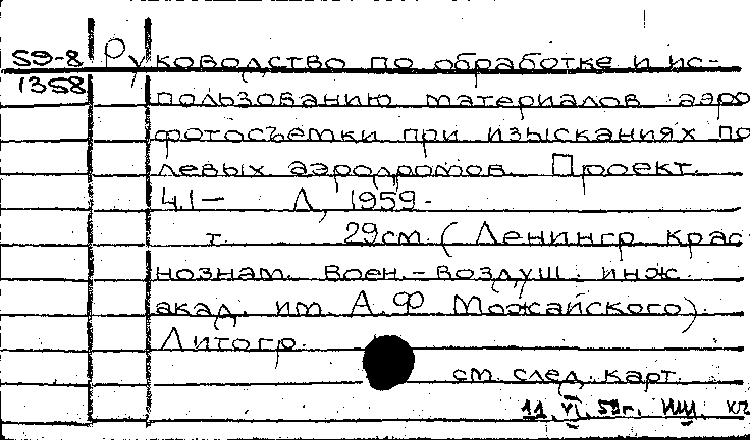 59-8
1358
Руководство по обработке и ис-
пользованию материалов аэро
фотосъемки при изысканиях по
левых аэродромов. Проект.
Ч.1— Л, 1959-
т. 29см. (Ленингр. крас
нознам. воен.-воздуш. инж.
акад. им. А.Ф Можайского).
Литогр.
см. след. карт.
11 VI 59г.